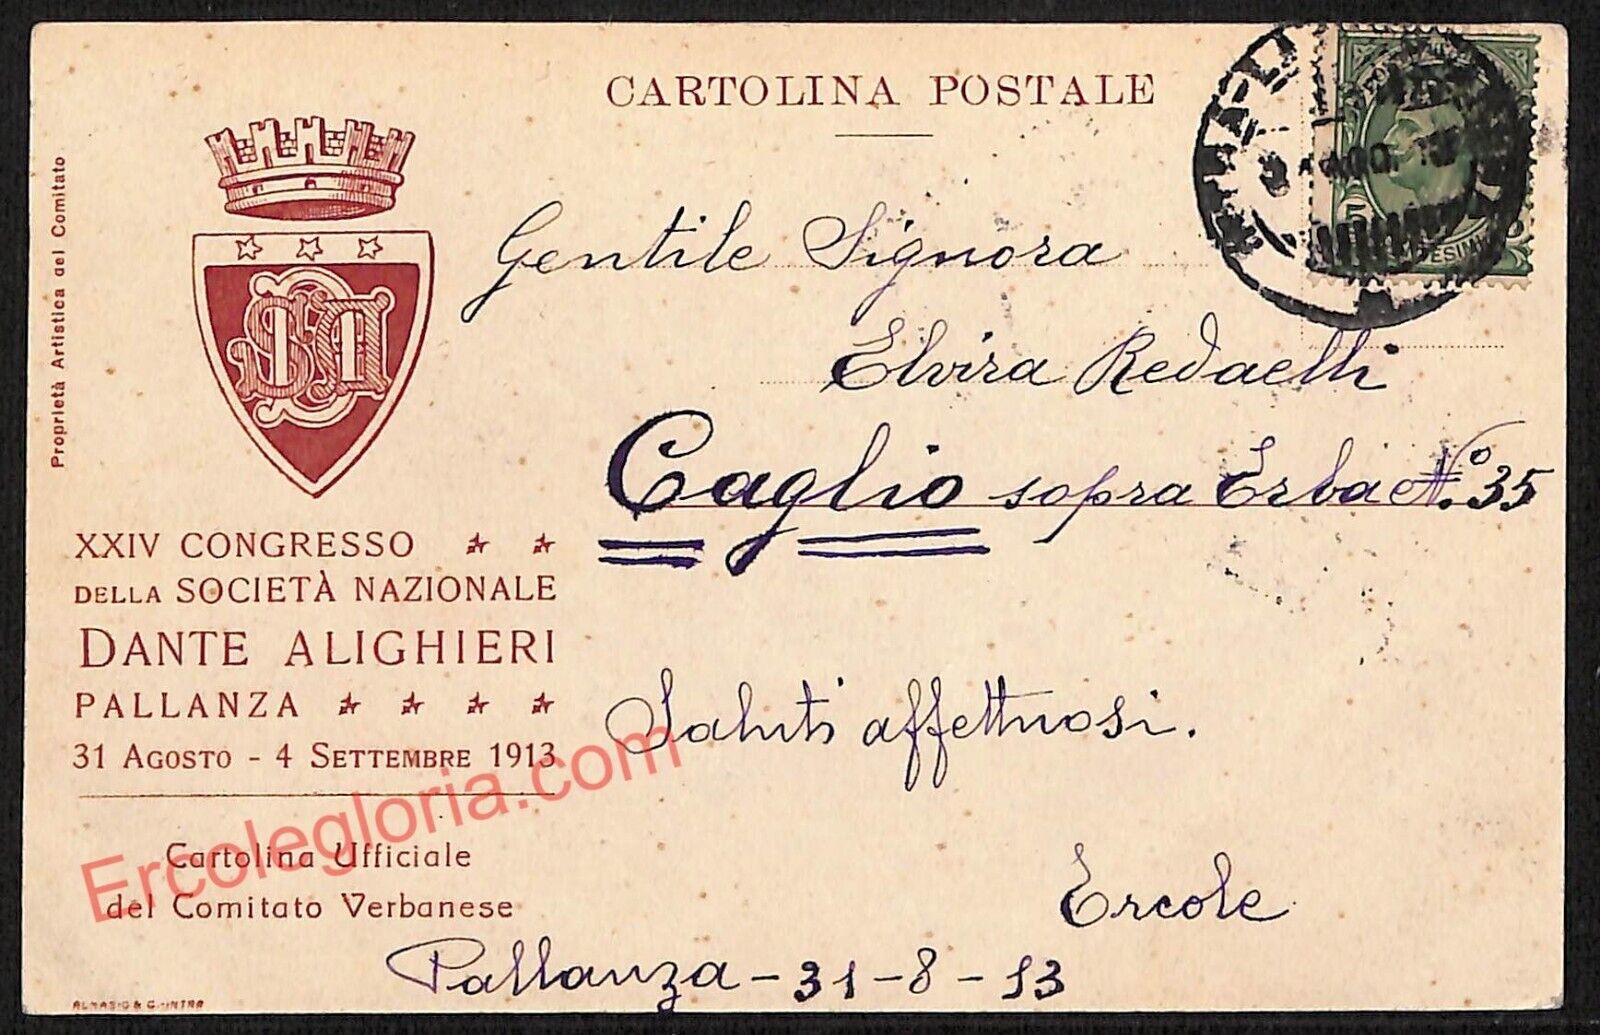 CARTOLINA POSTALE
Proprietà Artistica del Comitato
Gentile Signora
Elvira Redaelli
Caglio sopra Erba N.° 35
XXIV CONGRESSO
DELLA SOCIETÀ NAZIONALE
DANTE ALIGHIERI
PALLANZA
31 AGOSTO - 4 SETTEMBRE 1913
Saluti affettuosi.
Ercolegloria.com
Cartolina Ufficiale
del Comitato Verbanese
Ercole
Pallanza - 31 - 8 - 13
ALMASIO & C. - INTRA